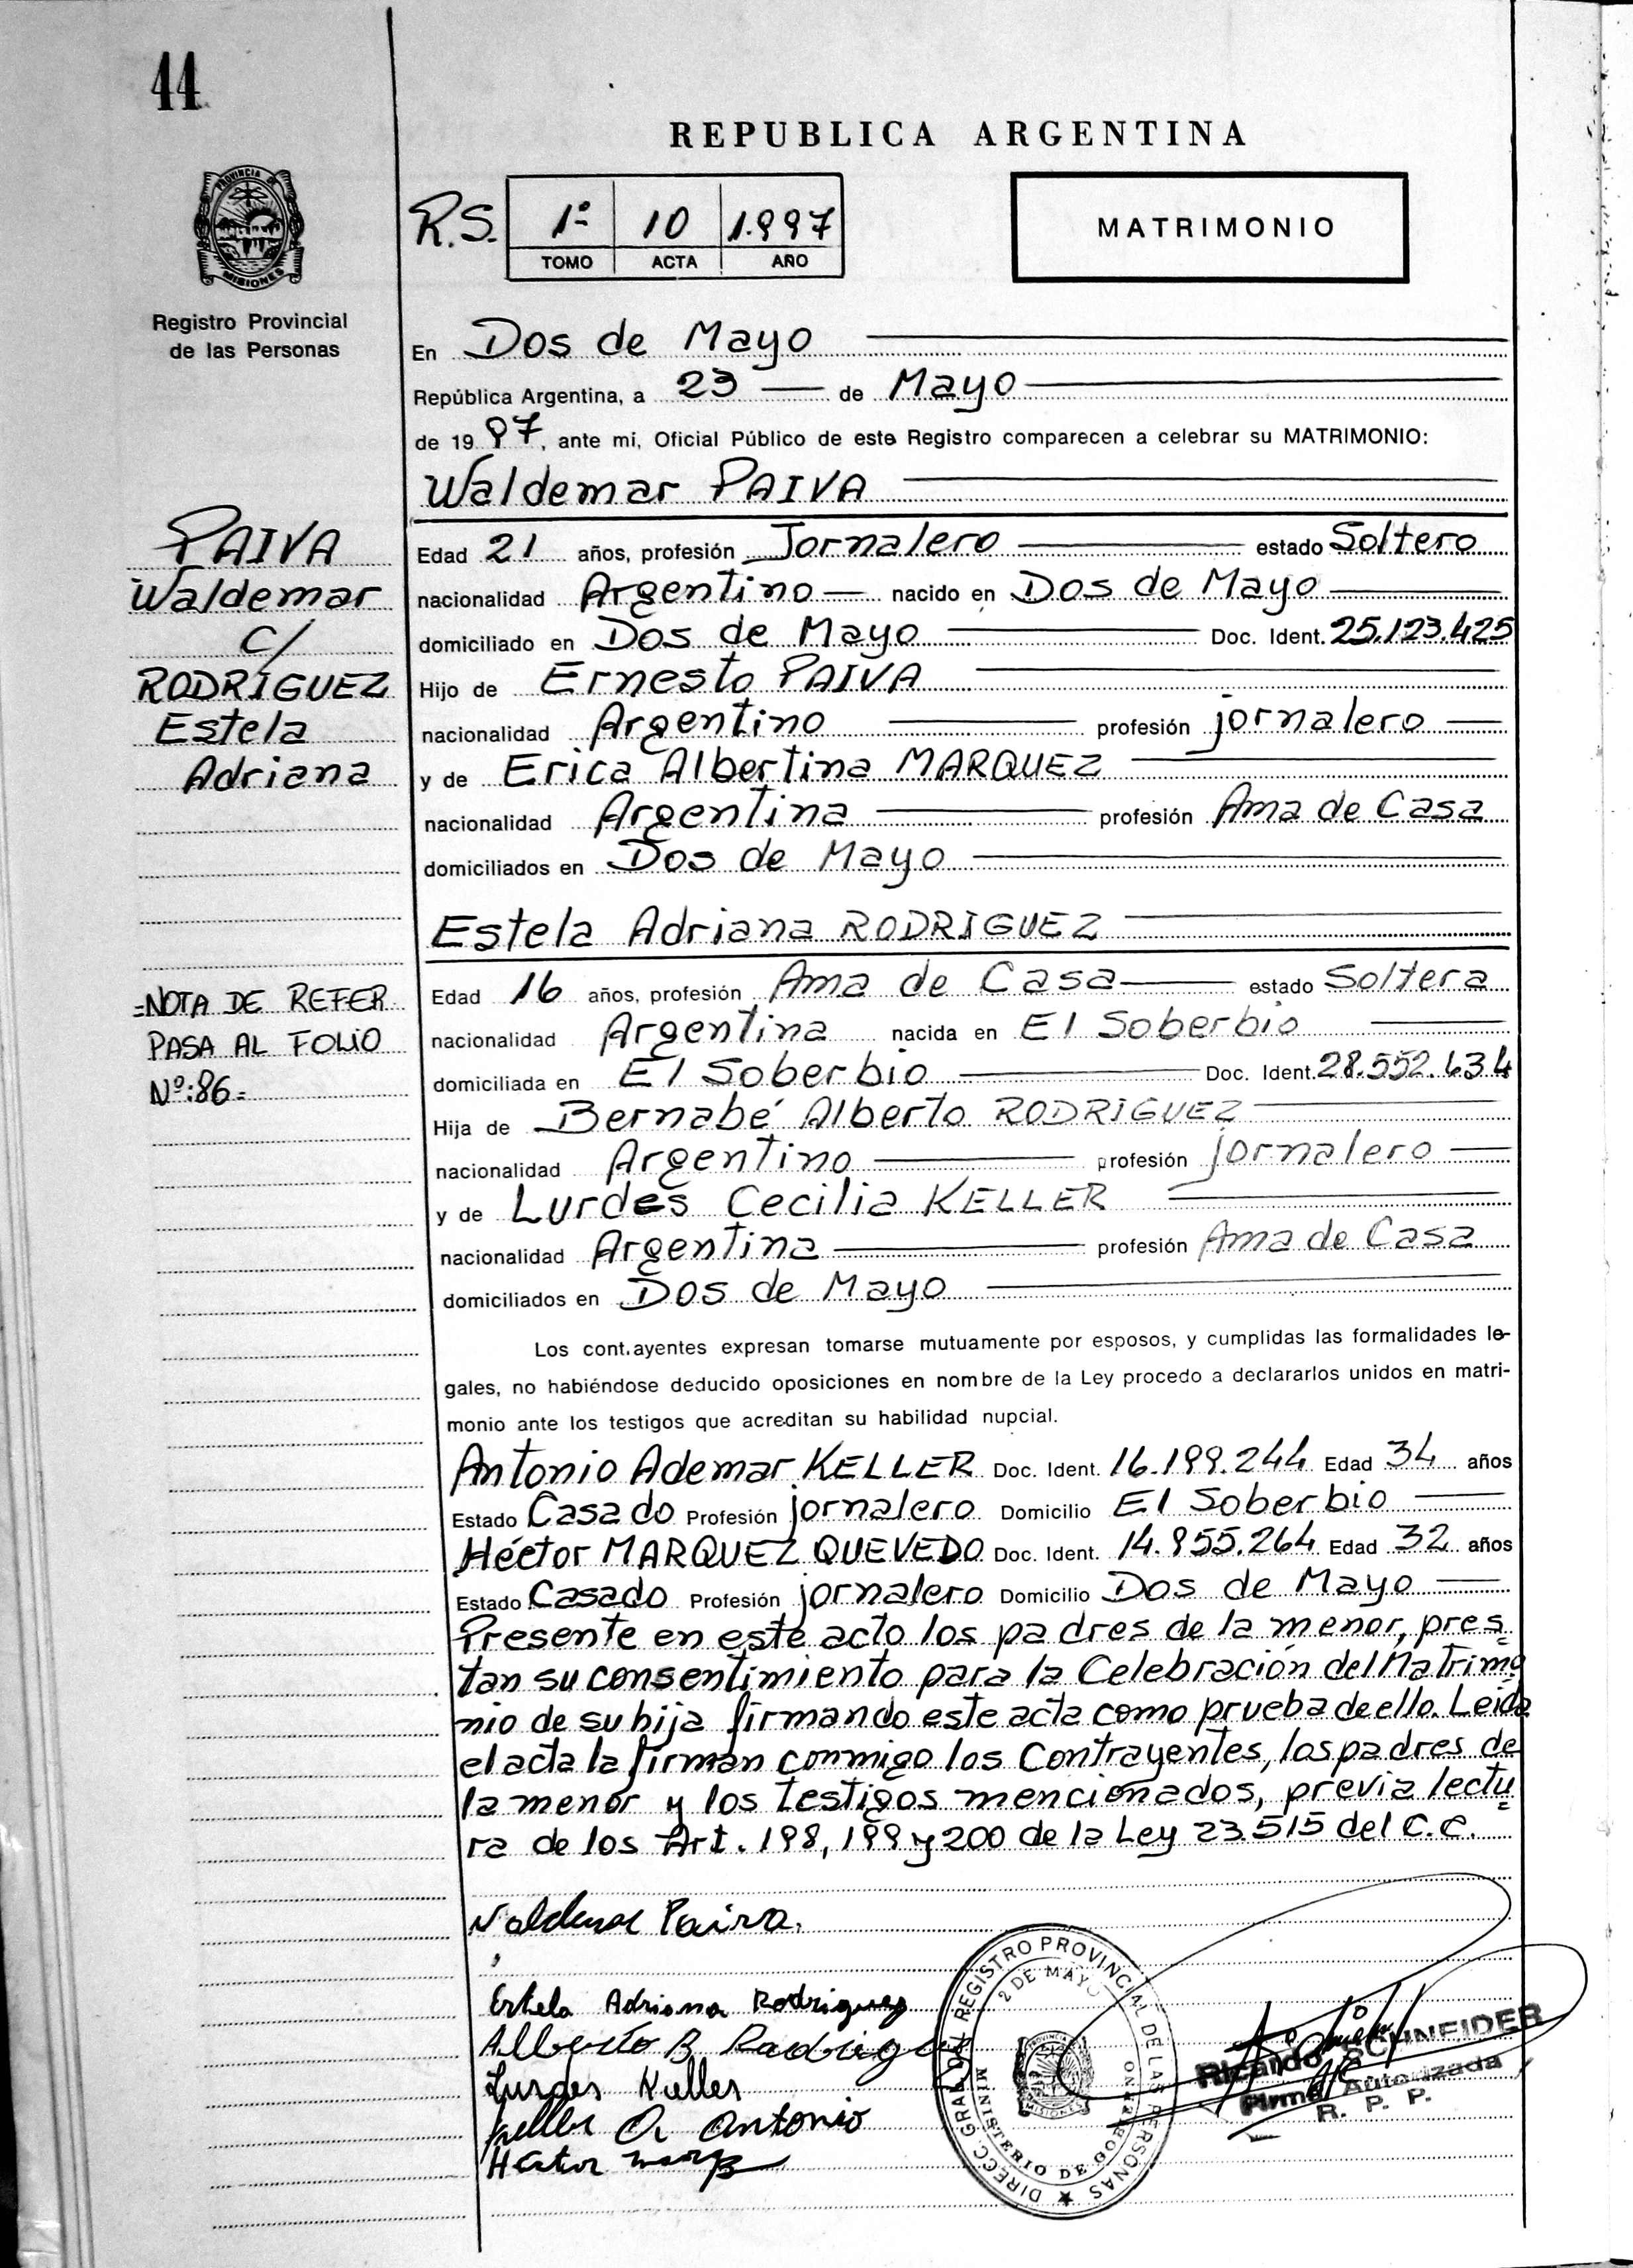 44
REPUBLICA ARGENTINA
PROVINCIA DE MISIONES
Registro Provincial
de las Personas
R.S. 1º 10 1.997
TOMO ACTA AÑO
MATRIMONIO
En Dos de Mayo
República Argentina, a 23 de Mayo
de 19 97, ante mi, Oficial Público de este Registro comparecen a celebrar su MATRIMONIO:
Waldemar PAIVA
PAIVA
Waldemar
C/
RODRIGUEZ
Estela
Adriana
Edad 21 años, profesión Jornalero estado Soltero
nacionalidad Argentino nacido en Dos de Mayo
domiciliado en Dos de Mayo Doc. Ident. 25.123.425
Hijo de Ernesto PAIVA
nacionalidad Argentino profesión jornalero
y de Erica Albertina MARQUEZ
nacionalidad Argentina profesión Ama de Casa
domiciliados en Dos de Mayo
Estela Adriana RODRIGUEZ
=NOTA DE REFER
PASA AL FOLIO
Nº:86=
Edad 16 años, profesión Ama de Casa estado Soltera
nacionalidad Argentina nacida en El Soberbio
domiciliada en El Soberbio Doc. Ident. 28.552.634
Hija de Bernabé Alberto RODRIGUEZ
nacionalidad Argentino profesión jornalero
y de Lurdes Cecilia KELLER
nacionalidad Argentina profesión Ama de Casa
domiciliados en Dos de Mayo
Los cont.ayentes expresan tomarse mutuamente por esposos, y cumplidas las formalidades le-
gales, no habiéndose deducido oposiciones en nombre de la Ley procedo a declararlos unidos en matri-
monio ante los testigos que acreditan su habilidad nupcial.
Antonio Ademar KELLER Doc. Ident. 16.199.244 Edad 34 años
Estado Casado Profesión jornalero Domicilio El Soberbio
Héctor MARQUEZ QUEVEDO Doc. Ident. 14.955.264 Edad 32 años
Estado Casado Profesión jornalero Domicilio Dos de Mayo
Presente en este acto los padres de la menor, pres=
tan su consentimiento para la Celebración del Matrimo
nio de su hija firmando este acta como prueba de ello. Leida
el acta la firman conmigo los Contrayentes, los padres de
la menor y los testigos mencionados, previa lectu=
ra de los Art. 198, 199 y 200 de la Ley 23.515 del C.C.
Waldemar Paiva.
Estela Adriana Rodriguez
Alberto B Rodrigue
Lurdes Keller
Keller A Antonio
Héctor
DIRECC. GRAL. DEL REGISTRO PROVINCIAL DE LAS PERSONAS
2 DE MAYO
MINISTERIO DE GOBIERNO
PROVINCIA MISIONES
Ricardo SCHNEIDER
Firma Autorizada
R. P. P.